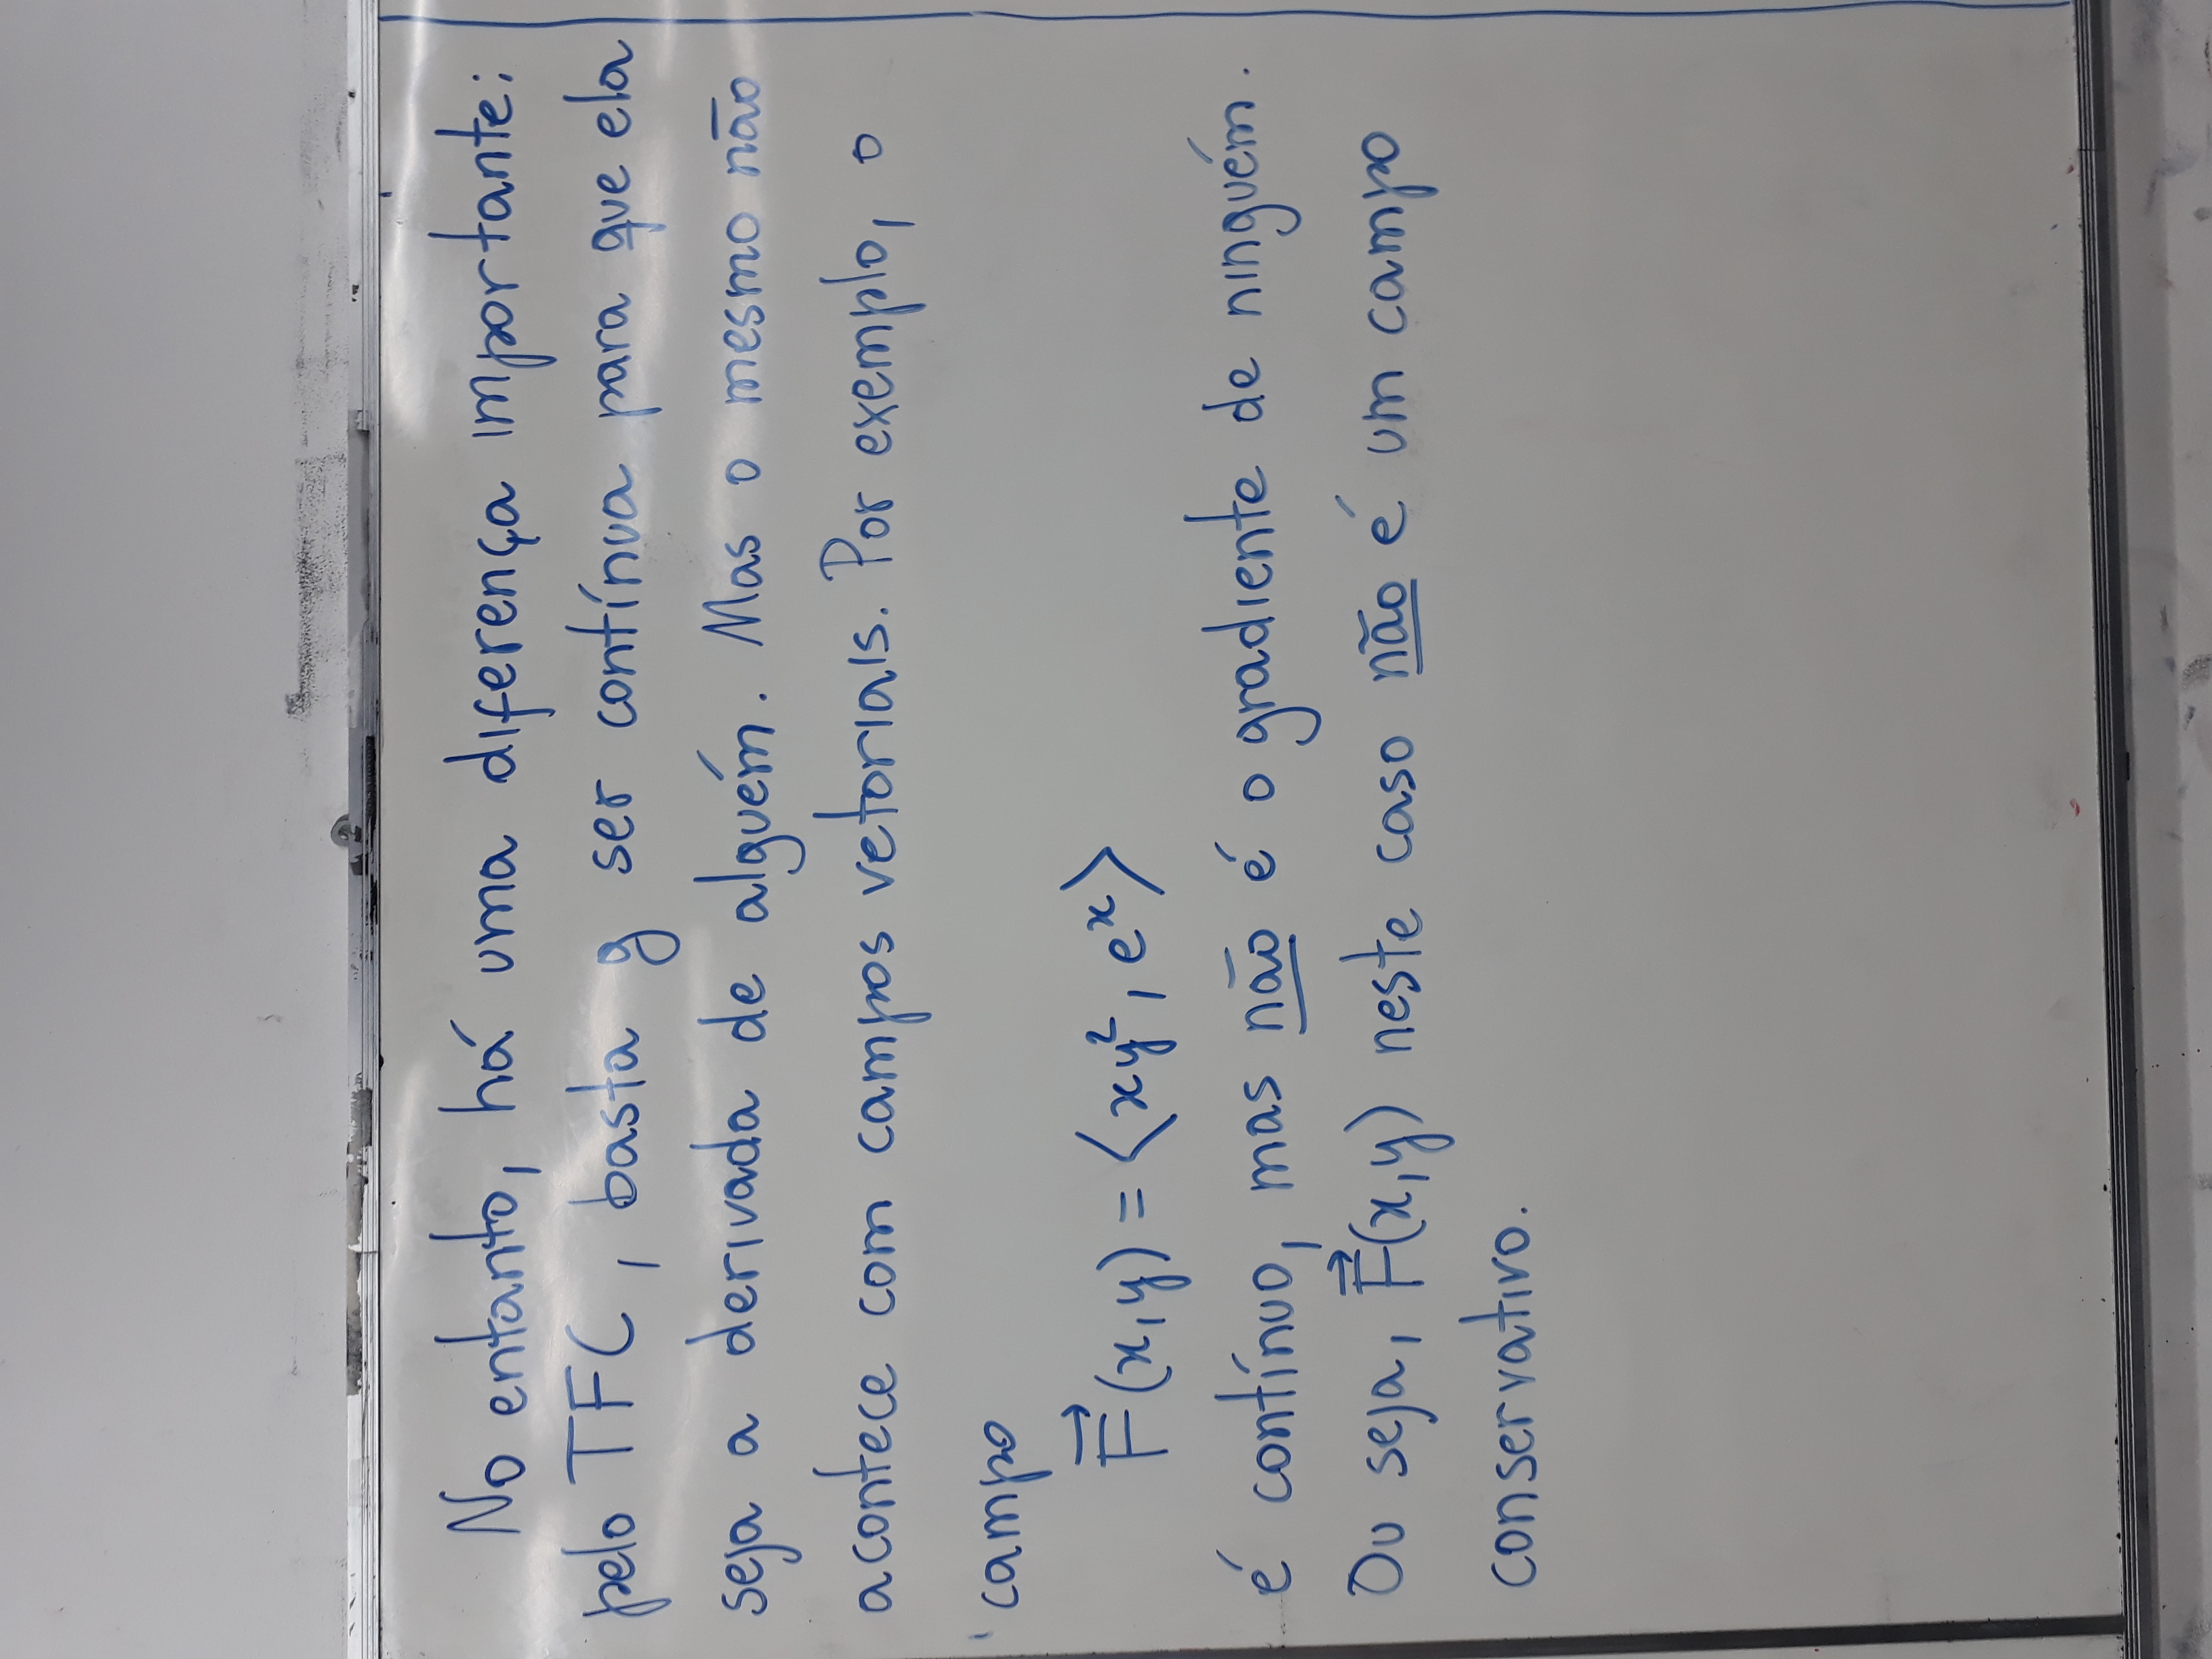 No entanto, há uma diferença importante:
pelo TFC, basta g ser contínua para que ela
seja a derivada de alguém. Mas o mesmo não
acontece com campos vetoriais. Por exemplo, o
campo
F⃗(x,y) = ⟨xy², eˣ⟩
é contínuo, mas não é o gradiente de ninguém.
Ou seja, F⃗(x,y) neste caso não é um campo
conservativo.